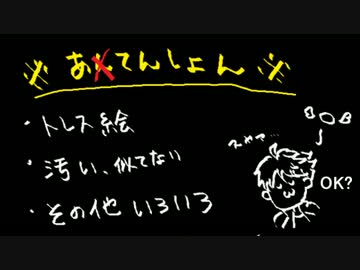 ※ あてんしょん ※
・トレス絵
・汚い、似てない
・その他いろいろ
OK?